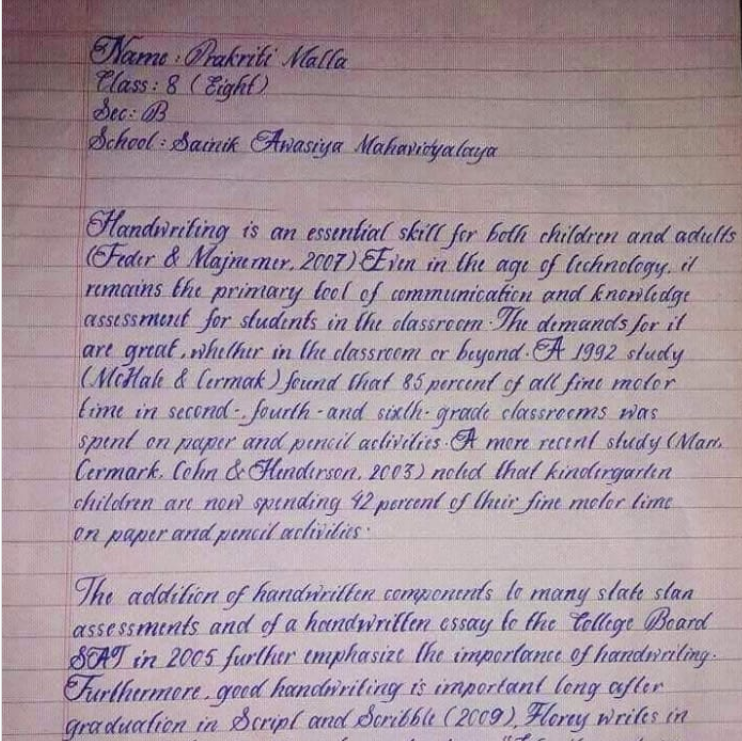 Name : Prakriti Malla
Class : 8 ( Eight )
Sec : B
School : Sainik Awasiya Mahavidyalaya
Handwriting is an essential skill for both children and adults
(Feder & Majnemer, 2007) Even in the age of technology, it
remains the primary tool of communication and knowledge
assessment for students in the classroom. The demands for it
are great, whether in the classroom or beyond. A 1992 study
(McHale & Cermak) found that 85 percent of all fine motor
time in second-, fourth-and sixth-grade classrooms was
spent on paper and pencil activities. A more recent study (Marr,
Cermark, Cohn & Henderson, 2003) noted that kindergarten
children are now spending 42 percent of their fine motor time
on paper and pencil activities.
The addition of handwritten components to many state stan
assessments and of a handwritten essay to the College Board
SAT in 2005 further emphasize the importance of handwriting.
Furthermore, good handwriting is important long after
graduation in Script and Scribble (2009), Florey writes in